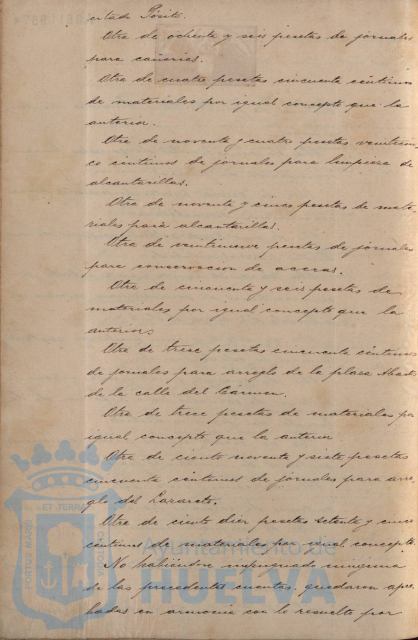 citado Pósito.
Otra de ochenta y seis pesetas de jornales
para cañerias.
Otra de cuatro pesetas cincuenta céntimos
de materiales por igual concepto que la
anterior.
Otra de noventa y cuatro pesetas veinticin-
co céntimos de jornales para limpieza de
alcantarillas.
Otra de noventa y cinco pesetas de mate-
riales para alcantarillas.
Otra de veintinueve pesetas de jornales
para conservacion de aceras.
Otra de cincuenta y seis pesetas de
materiales por igual concepto que la
anterior.
Otra de trece pesetas cincuenta céntimos
de jornales para arreglo de la plaza Abastos
de la calle del Carmen.
Otra de trece pesetas de materiales por
igual concepto que la anterior
Otra de ciento noventa y siete pesetas
cincuenta céntimos de jornales para arre-
glo del Lazareto.
Otra de ciento diez pesetas setenta y cinco
céntimos de materiales por igual concepto.
No habiéndose impugnado ninguna
de las precedentes cuentas, quedaron apro-
badas en armonia con lo resuelto por
Ayuntamiento de
HUELVA
PORTUS MARIS ET TERRAE CUSTODIA